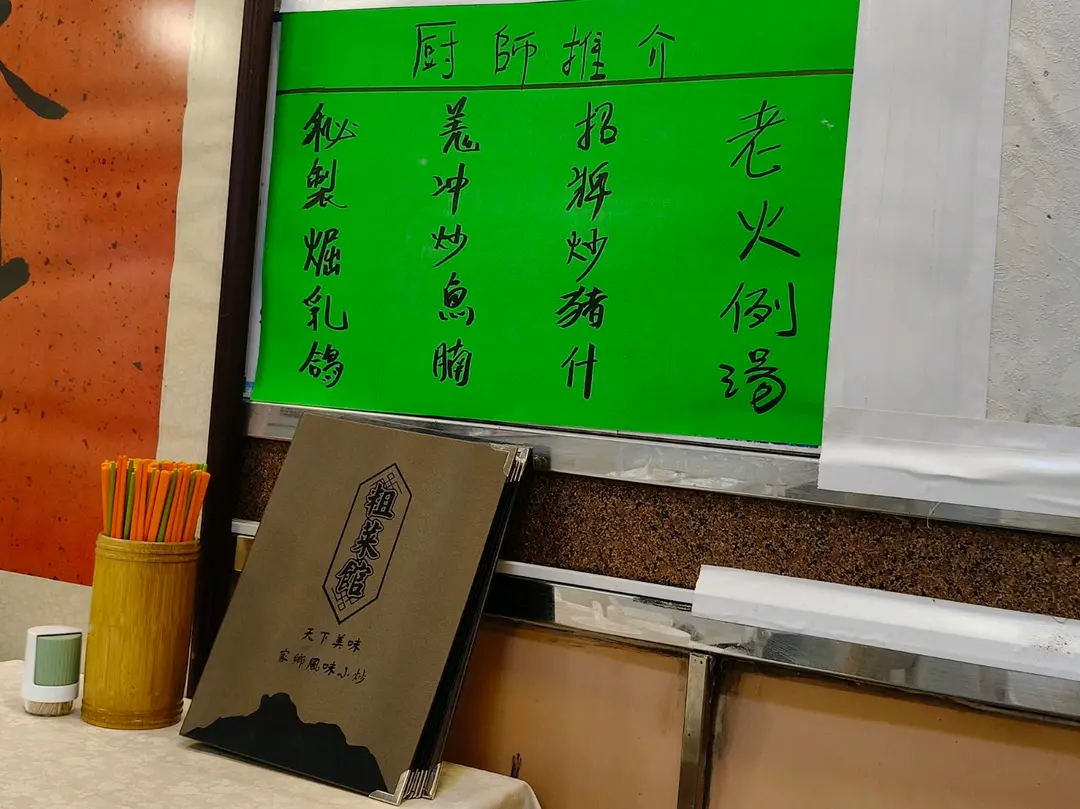 厨師推介
老火例湯
招牌炒豬什
羗冲炒魚腩
秘製焗乳鴿
祖菜館
天下美味
家鄉風味小炒